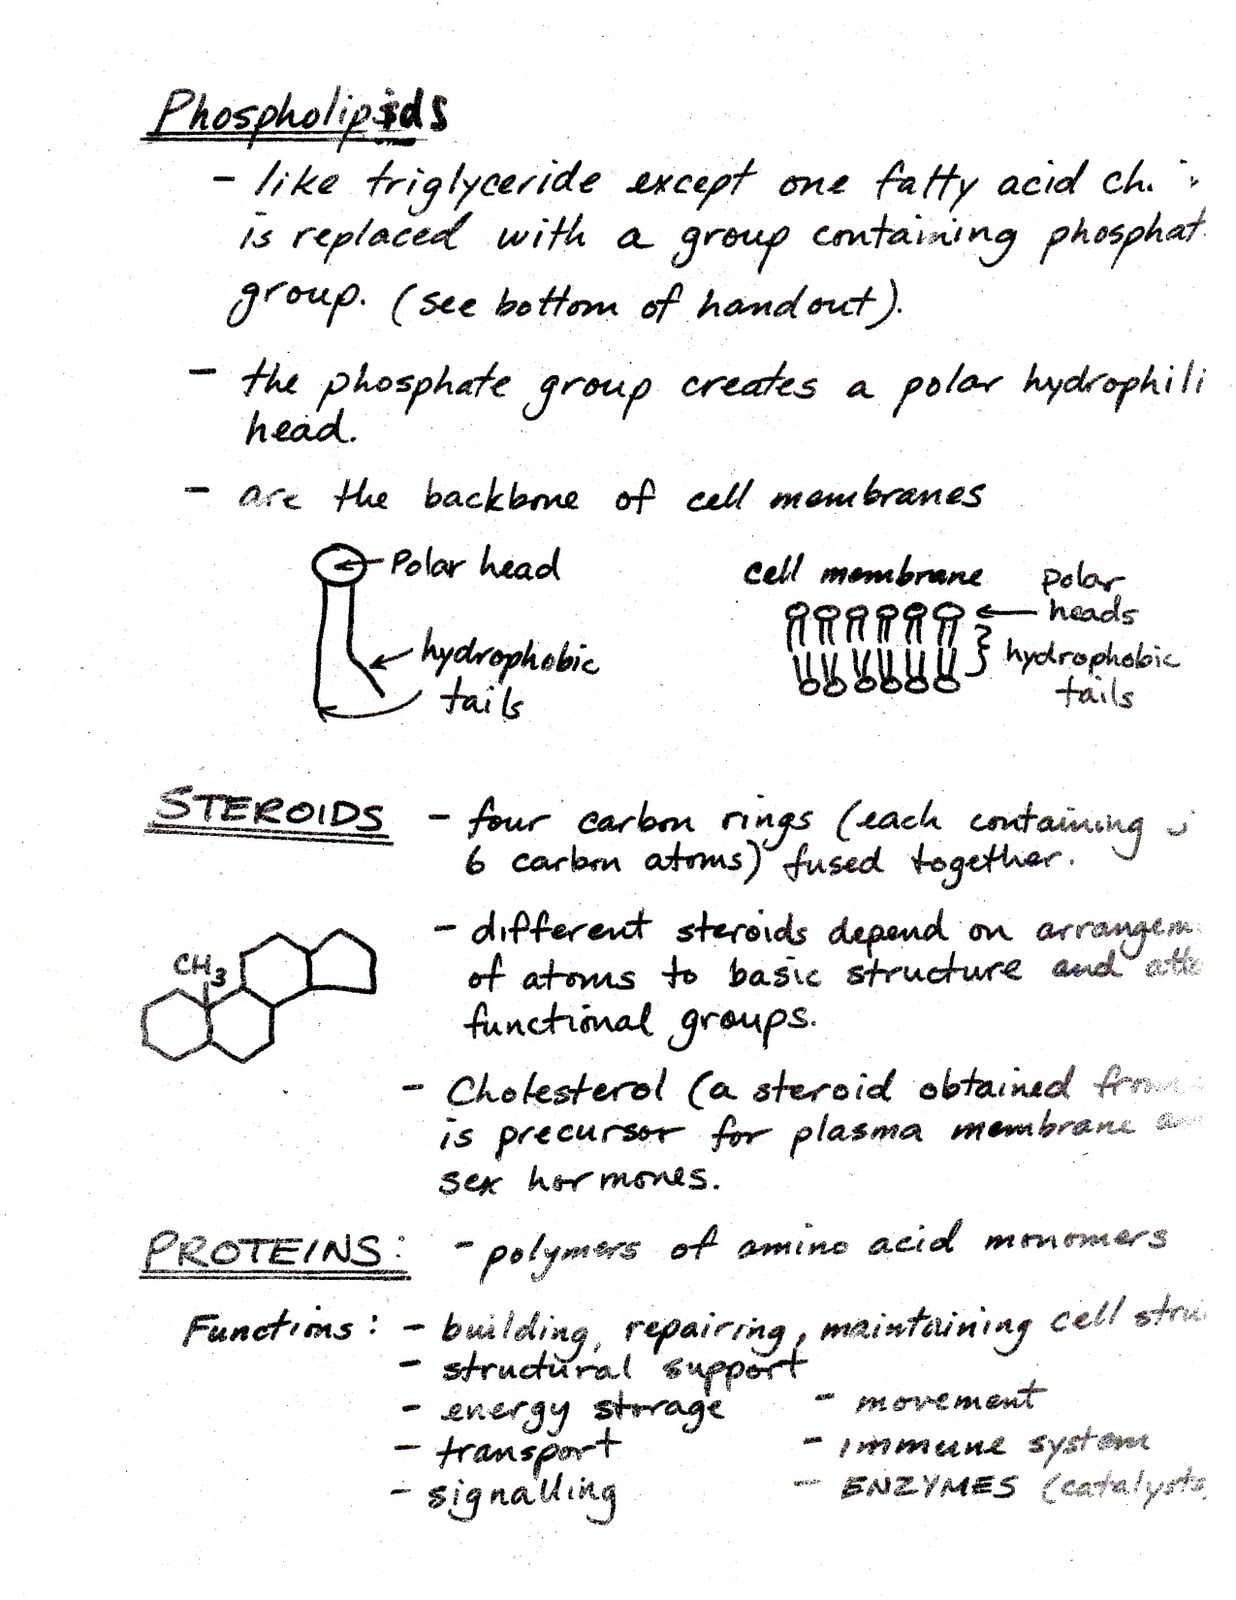 Phospholipids
- like triglyceride except one fatty acid ch.
is replaced with a group containing phosphat
group. (see bottom of handout).
- the phosphate group creates a polar hydrophili
head.
- are the backbone of cell membranes
Polar head
hydrophobic
tails
cell membrane
polar
heads
hydrophobic
tails
STEROIDS - four carbon rings (each containing 5
6 carbon atoms) fused together.
CH3
- different steroids depend on arrangem
of atoms to basic structure and atta
functional groups.
- Cholesterol (a steroid obtained from
is precursor for plasma membrane an
sex hormones.
PROTEINS: - polymers of amino acid monomers
Functions: - building, repairing, maintaining cell stru
- structural support
- energy storage - movement
- transport - immune system
- signalling - ENZYMES (catalysts